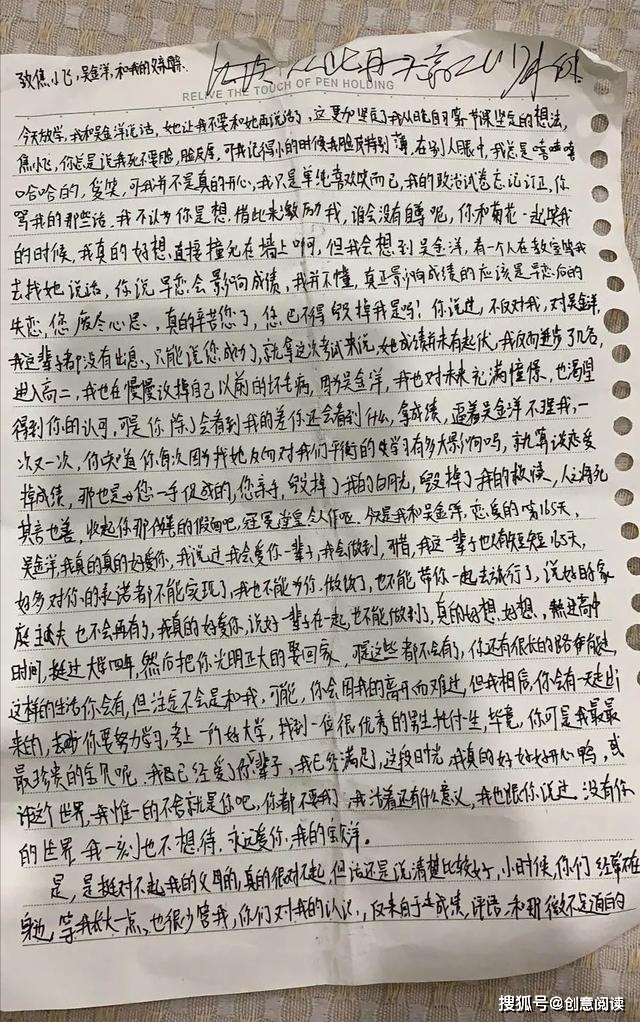 致焦小飞，吴金洋，和我的父母
RELIVE THE TOUCH OF PEN HOLDING
今天放学，我和吴金洋说话，她让我不要和她再说话了，这更加坚定了我从晚自习第一节课坚定的想法，
焦小飞，你总是说我死不要脸，脸皮厚，可我记得小的时候我脸皮特别薄，在别人眼中，我总是嘻嘻嘻
哈哈哈的，傻笑，可我并不是真的开心，我只是单纯喜欢笑而已，我的政治试卷忘记订正，你
骂我的那些话，我不认为你是想借此来激励我，谁会没有自尊呢，你和菊花一起笑我
的时候，我真的好想直接撞死在墙上啊，但我会想到吴金洋，有一个人在教室等我
去找她说话，你说早恋会影响成绩，我并不懂，真正影响成绩的应该是早恋后的
失恋，您废尽心思，真的辛苦您了，您巴不得毁掉我是吗？你说过，不反对我，对吴金洋，
我这辈子都没有出息，只能说您成功了，就拿这次考试来说，她成绩并未有起伏，我反而进步了几名，
进入高二，我也在慢慢改掉自己以前的坏毛病，因为吴金洋，我也对未来充满憧憬，也渴望
得到你的认可，可是你除了会看到我的差你还会看到什么，拿成绩，逼着吴金洋不理我，一
次又一次，你知道你每次因为我找她反而对我们平衡的学习有多大影响吗，就算谈恋爱
掉成绩，那也是您一手促成的，您亲手毁掉了我的白月光，毁掉了我的救赎，人之将死
其言也善，收起你那的假面吧，冠冕堂皇令人作呕，今天是我和吴金洋恋爱的第165天，
吴金洋，我真的真的好爱你，我说过我会爱你一辈子，我会做到，可惜，我这一辈子也只有短短165天，
好多对你的承诺都不能实现了，我也不能为你做饭了，也不能带你一起去旅行了，说好的家
庭主夫也不会再有了，我真的好爱你，说好一辈子在一起，也不能做到了，真的好想，好想，熬过高中
时间，挺过大学四年，然后把你光明正大的娶回家，可这些都不会有了，你还有很长的路
这样的生活你会有，但注定不会是和我，可能，你会因我的离开而难过，但我相信，你会有一天走出
来的，你要努力学习，考上一所好大学，找到一位很优秀的男生托付一生，毕竟，你可是我最最
最珍贵的宝贝呢，我已经爱了你一辈子，我已经满足了，这段时光，我真的好好好开心鸭，或
许这个世界，我惟一的不舍就是你吧，你都不要我了，我活着还有什么意义，我也跟你说过，没有你
的世界，我一刻也不想待，永远爱你，我的宝洋。
是，是挺对不起我的父母的，真的很对不起，但话还是说清楚比较好，小时候，你们经常不在
身边，等我长大一点，也很少管我，你们对我的认识，仅来自于成绩，评语，和那微不足道的
搜狐号@创意阅读